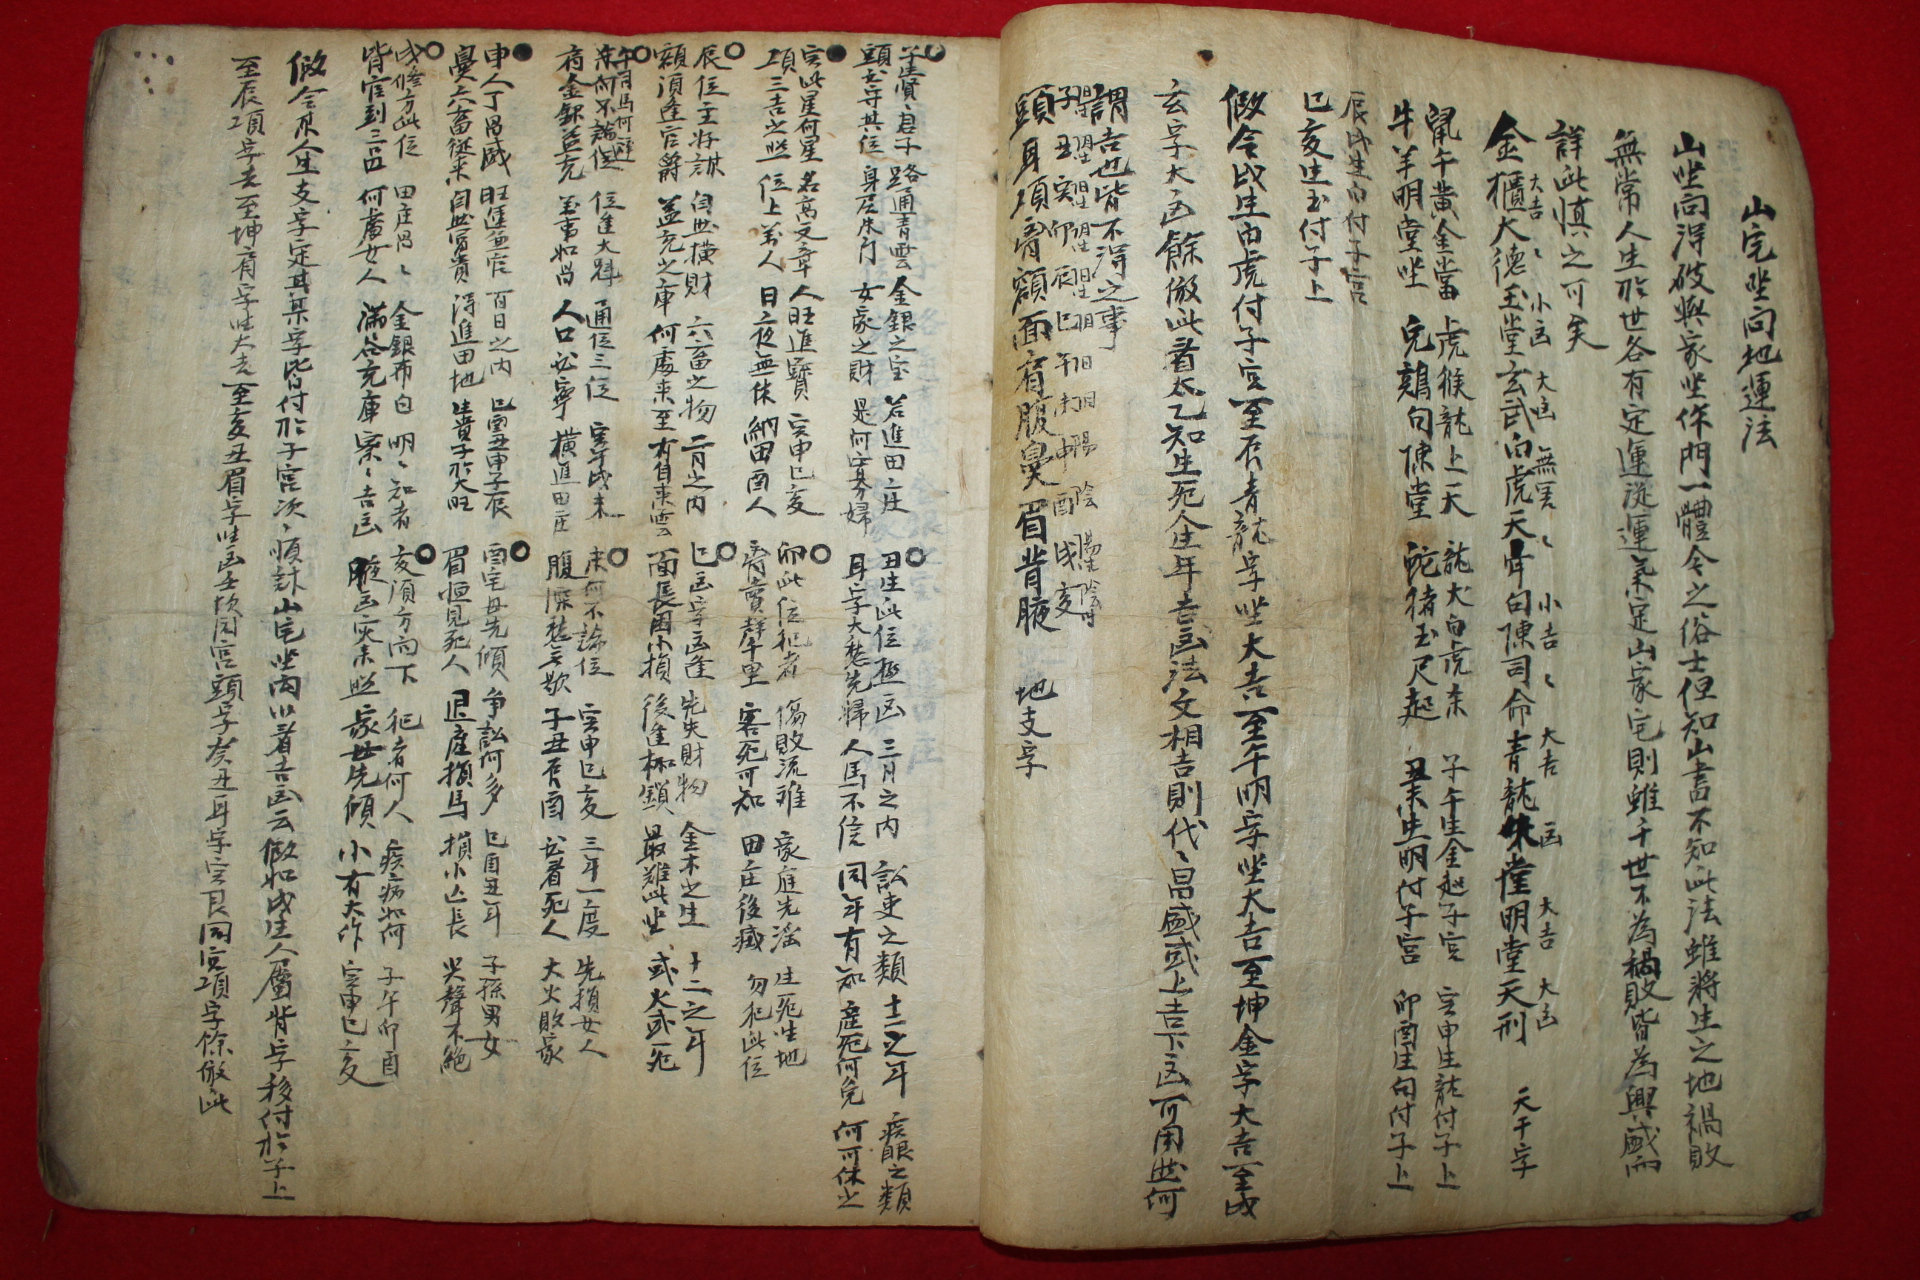 山宅坐向地運法
山坐向得破與家坐作門一體今之俗士但知山書不知此法雖將生之地禍敗
無常人生於世各有定運從運氣定山家宅則雖千世不為禍敗皆為興盛而
詳此慎之可矣
大吉〻 小凶 大凶 無定〻 小吉〻 大吉 凶 大吉 大凶
金櫃大德玉堂玄武白虎天牢句陳司命青龍朱雀明堂天刑 天干字
鼠午黃金當 虎猴龍上天 龍犬白虎來 子午生金起子宮 寅申生龍付子上
牛羊明堂坐 兔鷄句陳堂 蛇猪玉尺起 丑未生明付子宮 卯酉生句付子上
辰戌生白付子宮
巳亥生玉付子上
假令戌生白虎付子宮至辰青龍字坐大吉至午明字坐大吉至坤金字大吉至戌
玄字大凶餘倣此看太乙知生死仝年吉凶法文相吉則代〻昌盛或上吉下凶可用此何
謂吉也皆不得之事
子丑寅卯辰巳午未申酉戌亥
頭耳項肩額面看腹鼻眉背腋 地支字
子貴〻君子 路通青雲 金銀之宝 若進田庄 丑生此位極凶 三月之內 訟吏之類 十二之年 疾眼之類
頭長守其位 身居朱門 女家之財 是何寡婦 耳字大愁先歸 人馬不信 同年有知 產死何免 何可休之
寅此星何星 名高文章 人旺進寶 寅申巳亥 卯此位犯者 傷敗流離 家庭先淫 生死坐地
項三吉之照 位上萬人 日夜無休 納田酉人 客死可知 田庄後藏 勿犯此位
辰位主將謀 自此橫財 六畜之物 二月之內 巳凶字凶逢 先失財物 金木之生 十二之年
額須逢官爵 益充之庫 何處來至 有自來雲 面長困小損 後進枷鎖 最難此坐 或火或死
午 位進大魁 通位三位 寅午戌未 未何不論位 寅申巳亥 三年一度 先損女人
看金銀益充 萬事如昌 人口安寧 橫進田庄 腹深愁無歇 子丑有酉 必看死人 大火敗家
申人丁昌盛 旺進益官 百日之內 巳酉丑申子辰 酉宅母先傾 爭訟何多 巳酉丑年 子孫男女
鼻六畜從來 自此富貴 得進田地 生貴子於大旺 眉恒見死人 退庄損馬 損小亡長 哭聲不絕
戌修方此位 田庄昌〻 金銀布白 明〻知者 亥須方向下 犯者何人 疾病如何 子午卯酉
背官到三品 何處女人 滿谷充庫 果〻吉凶 腋凶灾來照 家世先傾 小有大作 寅申巳亥
假令 人生支字定其某字皆付於子宮次〻順計山宅坐向以看吉凶云假如戌生人屬背字移付於子上
至辰項字去至坤 字坐大吉至亥丑眉字坐凶 同宮頭字癸丑耳字寅艮同宮項字餘倣此